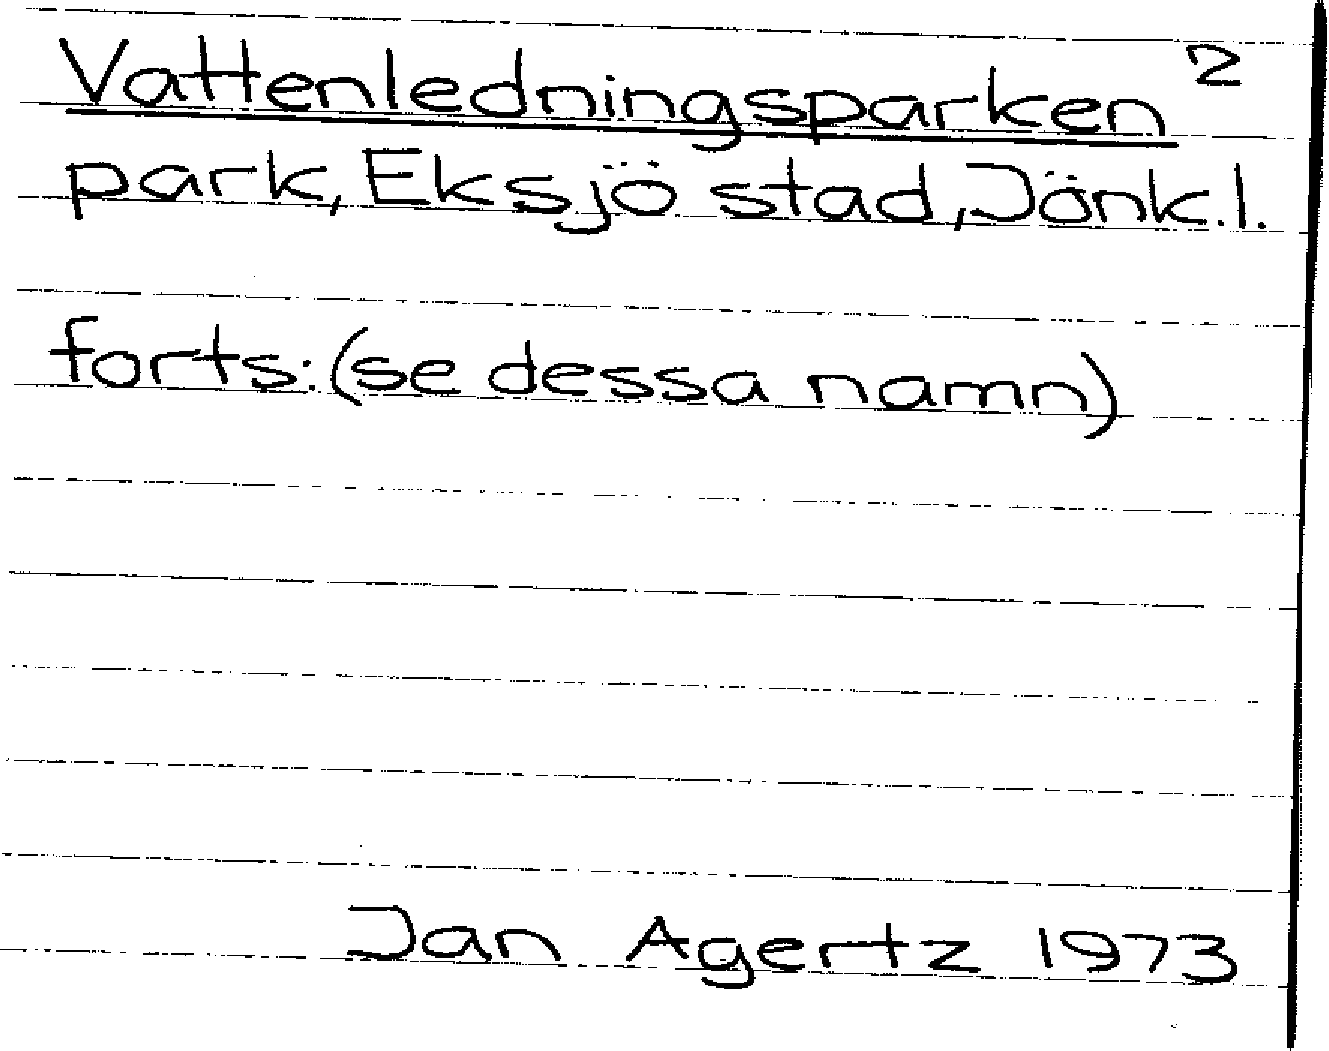 Vattenledningsparken 2
park, Eksjö stad, Jönk.l.
forts: (se dessa namn)
Jan Agertz 1973